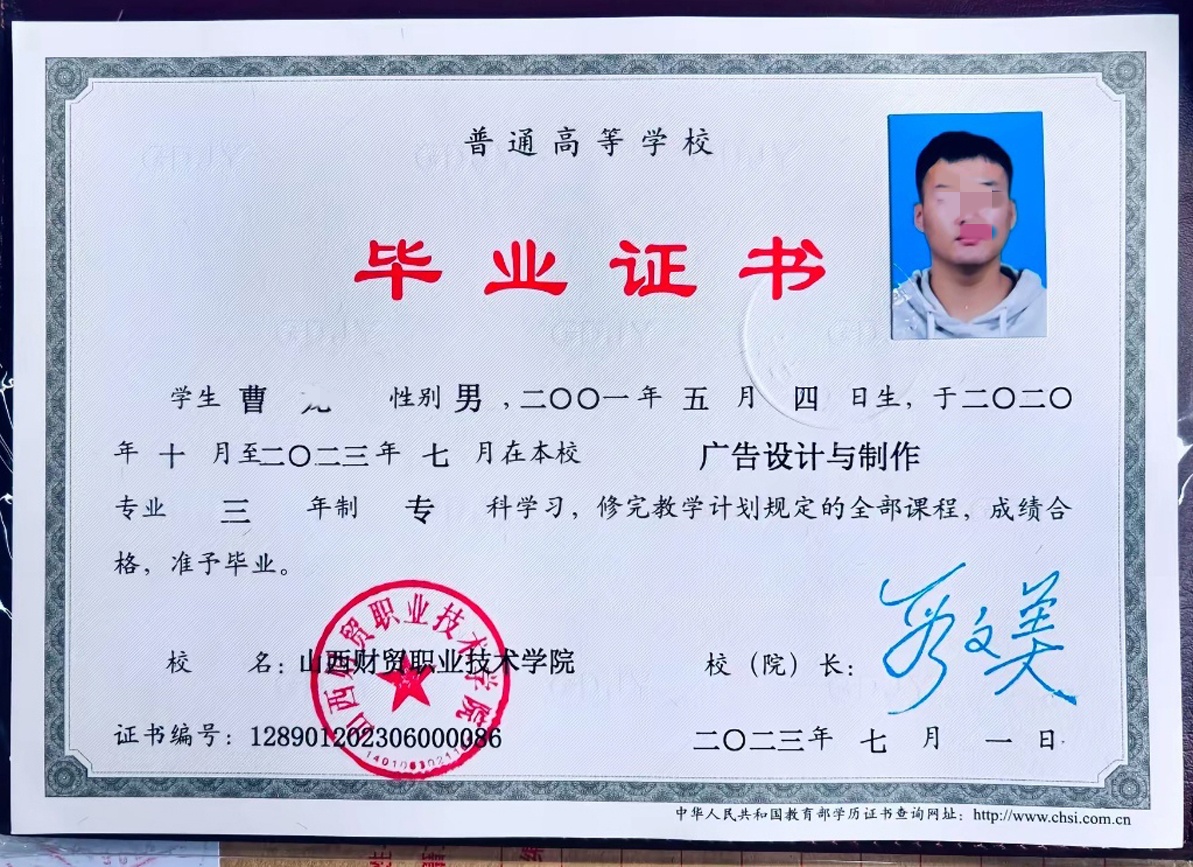 普通高等学校
毕业证书
学生 曹 性别 男，二〇〇一年 五 月 四 日生，于二〇二〇
年 十 月至二〇二三年 七 月在本校 广告设计与制作
专业 三 年制 专 科学习，修完教学计划规定的全部课程，成绩合
格，准予毕业。
山西财贸职业技术学院
校 名：山西财贸职业技术学院 校（院）长：
证书编号：128901202306000086 二〇二三年 七 月 一 日
中华人民共和国教育部学历证书查询网址：http://www.chsi.com.cn